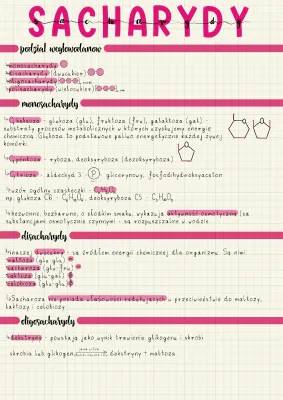 SACHARYDY
podział węglowodanów
monosacharydy
disacharydy (dwucukier)
oligosacharydy
polisacharydy (wielocukier)
monosacharydy
glukoza (glu), fruktoza (fru), galaktoza (gal) -
substraty procesów metabolicznych w których uzyskujemy energię
chemiczną. Glukoza to podstawowe paliwo energetyczne każdej żywej
komórki.
pentoza - ryboza, deoksyryboza (dezoksyryboza)
trioza - aldehyd 3 - P glicerynowy, fosfodihydroksyaceton
wzór ogólny cząsteczki :
np. glukoza C6 - C₆H₁₂O₆, deoksyryboza C5 - C₅H₁₀O₄
bezwonne, bezbarwne, o słodkim smaku, wykazują aktywność osmotyczną (są
substancjami osmotycznie czynnymi) - są rozpuszczalne w wodzie
disacharydy
inaczej dwucukry - są źródłem energii chemicznej dla organizmu. Są nimi:
maltoza (glu-glu)
sacharoza (glu-fru)
laktoza (glu-gal)
celobioza (glu-glu)
Sacharoza nie posiada właściwości redukujących w przeciwieństwie do maltozy,
laktozy i celobiozy
oligosacharydy
dekstryny - powstają jako wynik trawienia glikogenu i skrobi
skrobia lub glikogen dekstryny + maltoza